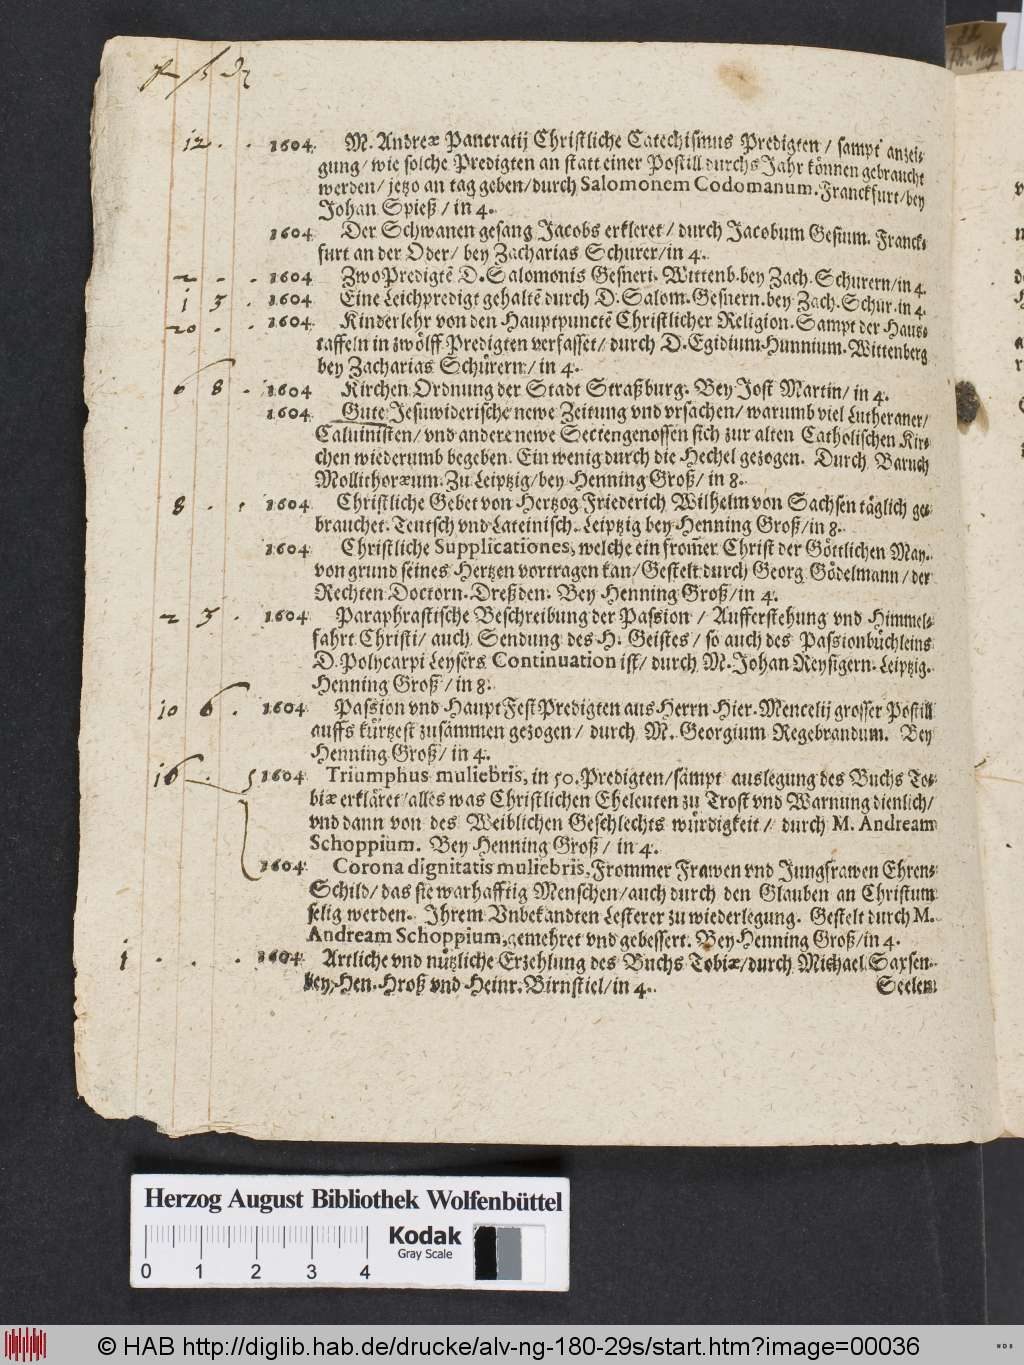 12. 1604. M. Andreæ Pancratij Christliche Catechismus Predigten / sampt anzei-
gung / wie solche Predigten an statt einer Postill durchs Jahr können gebraucht
werden / jetzo an tag geben / durch Salomonem Codomanum. Franckfurt / bey
Johan Spieß / in 4.
1604 Der Schwanen gesang Jacobs erkleret / durch Jacobum Gesium. Franck-
furt an der Oder / bey Zacharias Schurer / in 4.
2 1604 Zwo Predigtẽ D. Salomonis Gesneri. Wittenb. bey Zach. Schurern / in 4.
1 3 1604 Eine Leichpredigt gehaltẽ durch D. Salom. Gesnern. bey Zach. Schur. in 4.
20 1604 Kinderlehr von den Hauptpunctẽ Christlicher Religion. Sampt der Haus-
taffeln in zwölff Predigten verfasset / durch D. Egidium Hunnium. Wittenberg
bey Zacharias Schürern / in 4.
6 8 1604 Kirchen Ordnung der Stadt Straßburg. Bey Jost Martin / in 4.
1604 Gute Jesuwiderische newe Zeitung vnd vrsachen / warumb viel Lutheraner /
Caluinisten / vnd andere newe Sectengenossen sich zur alten Catholischen Kir-
chen wiederumb begeben. Ein wenig durch die Hechel gezogen. Durch Baruch
Mollithoræum. Zu Leipzig / bey Henning Groß / in 8.
8 1604 Christliche Gebet von Hertzog Friederich Wilhelm von Sachsen täglich ge-
brauchet. Teutsch vnd Lateinisch. Leipzig bey Henning Groß / in 8.
1604 Christliche Supplicationes, welche ein from̃er Christ der Göttlichen May.
von grund seines Hertzen vortragen kan / Gestelt durch Georg Gödelmann / der
Rechten Doctorn. Dreßden. Bey Henning Groß / in 4.
2 3 1604 Paraphrastische Beschreibung der Passion / Aufferstehung vnd Himmel-
fahrt Christi / auch Sendung des H. Geistes / so auch des Passionbüchleins
D. Polycarpi Leysers Continuation ist / durch M. Johan Reysigern. Leipzig.
Henning Groß / in 8.
10 6 1604 Passion vnd Haupt Fest Predigten aus Herrn Hier. Mencelij grosser Postill
auffs kürtzest zusammen gezogen / durch M. Georgium Regebrandum. Bey
Henning Groß / in 4.
16 1604 Triumphus muliebris, in 50. Predigten / sampt auslegung des Buchs To-
biæ erkläret / alles was Christlichen Eheleuten zu Trost vnd Warnung dienlich /
vnd dann von des Weiblichen Geschlechts würdigkeit / durch M. Andream
Schoppium. Bey Henning Groß / in 4.
1604 Corona dignitatis muliebris, Frommer Frawen vnd Jungfrawen Ehren-
Schild / das sie warhafftig Menschen / auch durch den Glauben an Christum
selig werden. Ihrem Vnbekandten Lesterer zu wiederlegung. Gestelt durch M.
Andream Schoppium, gemehret vnd gebessert. Bey Henning Groß / in 4.
1 1604 Artliche vnd nützliche Erzehlung des Buchs Tobiæ / durch Michael Saxsen.
bey Hen. Hroß vnd Heinr. Birnstiel / in 4.
Seelen
Herzog August Bibliothek Wolfenbüttel
Kodak
Gray Scale
0 1 2 3 4
© HAB http://diglib.hab.de/drucke/alv-ng-180-29s/start.htm?image=00036